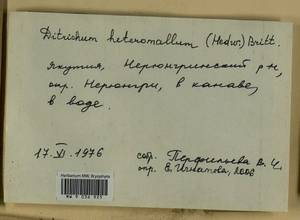 Ditrichum heteromallum (Hedw.) Britt.
Якутия, Нерюнгринский р-н,
окр. Нерюнгри, в канаве,
в воде.
17. VI. 1976
собр. Перфильева В. И.
опр. Е. Игнатова, 2006
Herbarium MW, Bryophyta
MW 9 034 925